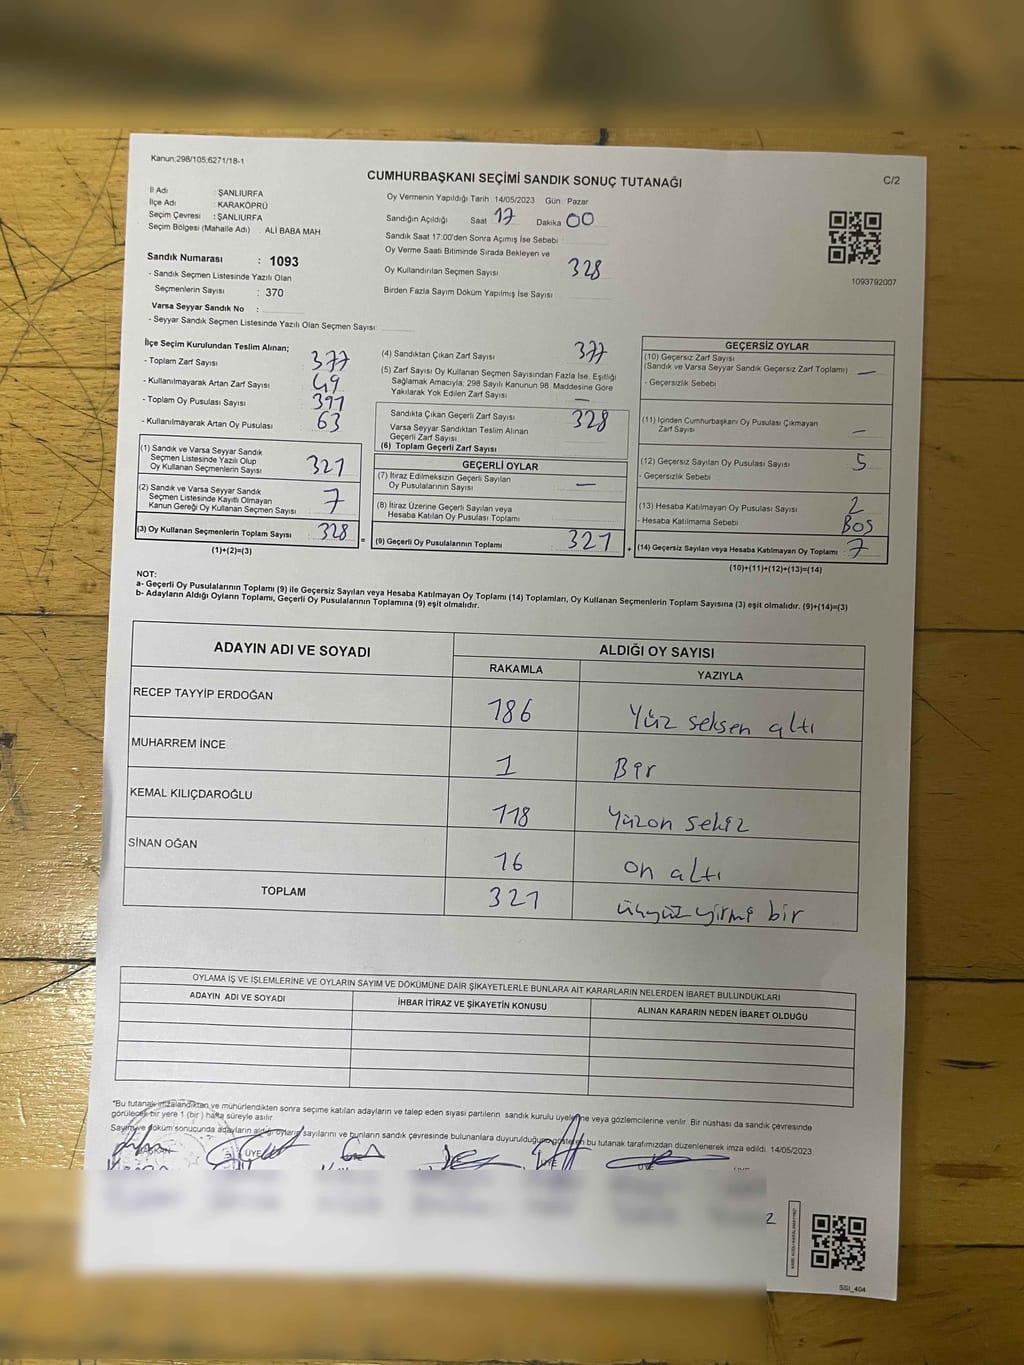 Kanun:298/105;6271/18-1
CUMHURBAŞKANI SEÇİMİ SANDIK SONUÇ TUTANAĞI
C/2
İl Adı : ŞANLIURFA
İlçe Adı : KARAKÖPRÜ
Seçim Çevresi : ŞANLIURFA
Seçim Bölgesi (Mahalle Adı) : ALİ BABA MAH
Sandık Numarası : 1093
- Sandık Seçmen Listesinde Yazılı Olan
Seçmenlerin Sayısı : 370
Varsa Seyyar Sandık No :
- Seyyar Sandık Seçmen Listesinde Yazılı Olan Seçmen Sayısı:
Oy Vermenin Yapıldığı Tarih : 14/05/2023 Gün : Pazar
Sandığın Açıldığı Saat 17 Dakika 00
Sandık Saat 17:00'den Sonra Açımış İse Sebebi
Oy Verme Saati Bitiminde Sırada Bekleyen ve
Oy Kullandırılan Seçmen Sayısı 328
Birden Fazla Sayım Döküm Yapılmış İse Sayısı
1093792007
İlçe Seçim Kurulundan Teslim Alınan;
- Toplam Zarf Sayısı 377
- Kullanılmayarak Artan Zarf Sayısı 49
- Toplam Oy Pusulası Sayısı 391
- Kullanılmayarak Artan Oy Pusulası 63
(1) Sandık ve Varsa Seyyar Sandık
Seçmen Listesinde Yazılı Olup
Oy Kullanan Seçmenlerin Sayısı 321
(2) Sandık ve Varsa Seyyar Sandık
Seçmen Listesinde Kayıtlı Olmayan
Kanun Gereği Oy Kullanan Seçmen Sayısı 7
(3) Oy Kullanan Seçmenlerin Toplam Sayısı 328
(1)+(2)=(3)
(4) Sandıktan Çıkan Zarf Sayısı 377
(5) Zarf Sayısı Oy Kullanan Seçmen Sayısından Fazla İse, Eşitliği
Sağlamak Amacıyla; 298 Sayılı Kanunun 98. Maddesine Göre
Yakılarak Yok Edilen Zarf Sayısı —
Sandıkta Çıkan Geçerli Zarf Sayısı 328
Varsa Seyyar Sandıktan Teslim Alınan
Geçerli Zarf Sayısı
(6) Toplam Geçerli Zarf Sayısı
GEÇERLİ OYLAR
(7) İtiraz Edilmeksizin Geçerli Sayılan
Oy Pusulalarının Sayısı —
(8) İtiraz Üzerine Geçerli Sayılan veya
Hesaba Katılan Oy Pusulası Toplamı
(9) Geçerli Oy Pusulalarının Toplamı 321
GEÇERSİZ OYLAR
(10) Geçersiz Zarf Sayısı
(Sandık ve Varsa Seyyar Sandık Geçersiz Zarf Toplamı) —
- Geçersizlik Sebebi
(11) İçinden Cumhurbaşkanı Oy Pusulası Çıkmayan
Zarf Sayısı —
(12) Geçersiz Sayılan Oy Pusulası Sayısı 5
- Geçersizlik Sebebi
(13) Hesaba Katılmayan Oy Pusulası Sayısı 2
- Hesaba Katılmama Sebebi BOS
(14) Geçersiz Sayılan veya Hesaba Katılmayan Oy Toplamı 7
(10)+(11)+(12)+(13)=(14)
NOT:
a- Geçerli Oy Pusulalarının Toplamı (9) ile Geçersiz Sayılan veya Hesaba Katılmayan Oy Toplamı (14) Toplamları, Oy Kullanan Seçmenlerin Toplam Sayısına (3) eşit olmalıdır. (9)+(14)=(3)
b- Adayların Aldığı Oyların Toplamı, Geçerli Oy Pusulalarının Toplamına (9) eşit olmalıdır.
ADAYIN ADI VE SOYADI ALDIĞI OY SAYISI
RAKAMLA YAZIYLA
RECEP TAYYİP ERDOĞAN 186 Yüz seksen altı
MUHARREM İNCE 1 Bir
KEMAL KILIÇDAROĞLU 118 Yüzon sekiz
SİNAN OĞAN 16 on altı
TOPLAM 321 üçyüz yirmi bir
OYLAMA İŞ VE İŞLEMLERİNE VE OYLARIN SAYIM VE DÖKÜMÜNE DAİR ŞİKAYETLERLE BUNLARA AİT KARARLARIN NELERDEN İBARET BULUNDUKLARI
ADAYIN ADI VE SOYADI İHBAR İTİRAZ VE ŞİKAYETİN KONUSU ALINAN KARARIN NEDEN İBARET OLDUĞU
*Bu tutanak imzalandıktan ve mühürlendikten sonra seçime katılan adayların ve talep eden siyasi partilerin sandık kurulu üyelerine veya gözlemcilerine verilir. Bir nüshası da sandık çevresinde
görülecek bir yere 1 (bir) hafta süreyle asılır.
Sayım ve döküm sonucunda adayların aldığı oyların sayılarını ve bunların sandık çevresinde bulunanlara duyurulduğunu gösteren bu tutanak tarafımızdan düzenlenerek imza edildi. 14/05/2023
BAŞKAN ÜYE ÜYE ÜYE
2
SSI_404